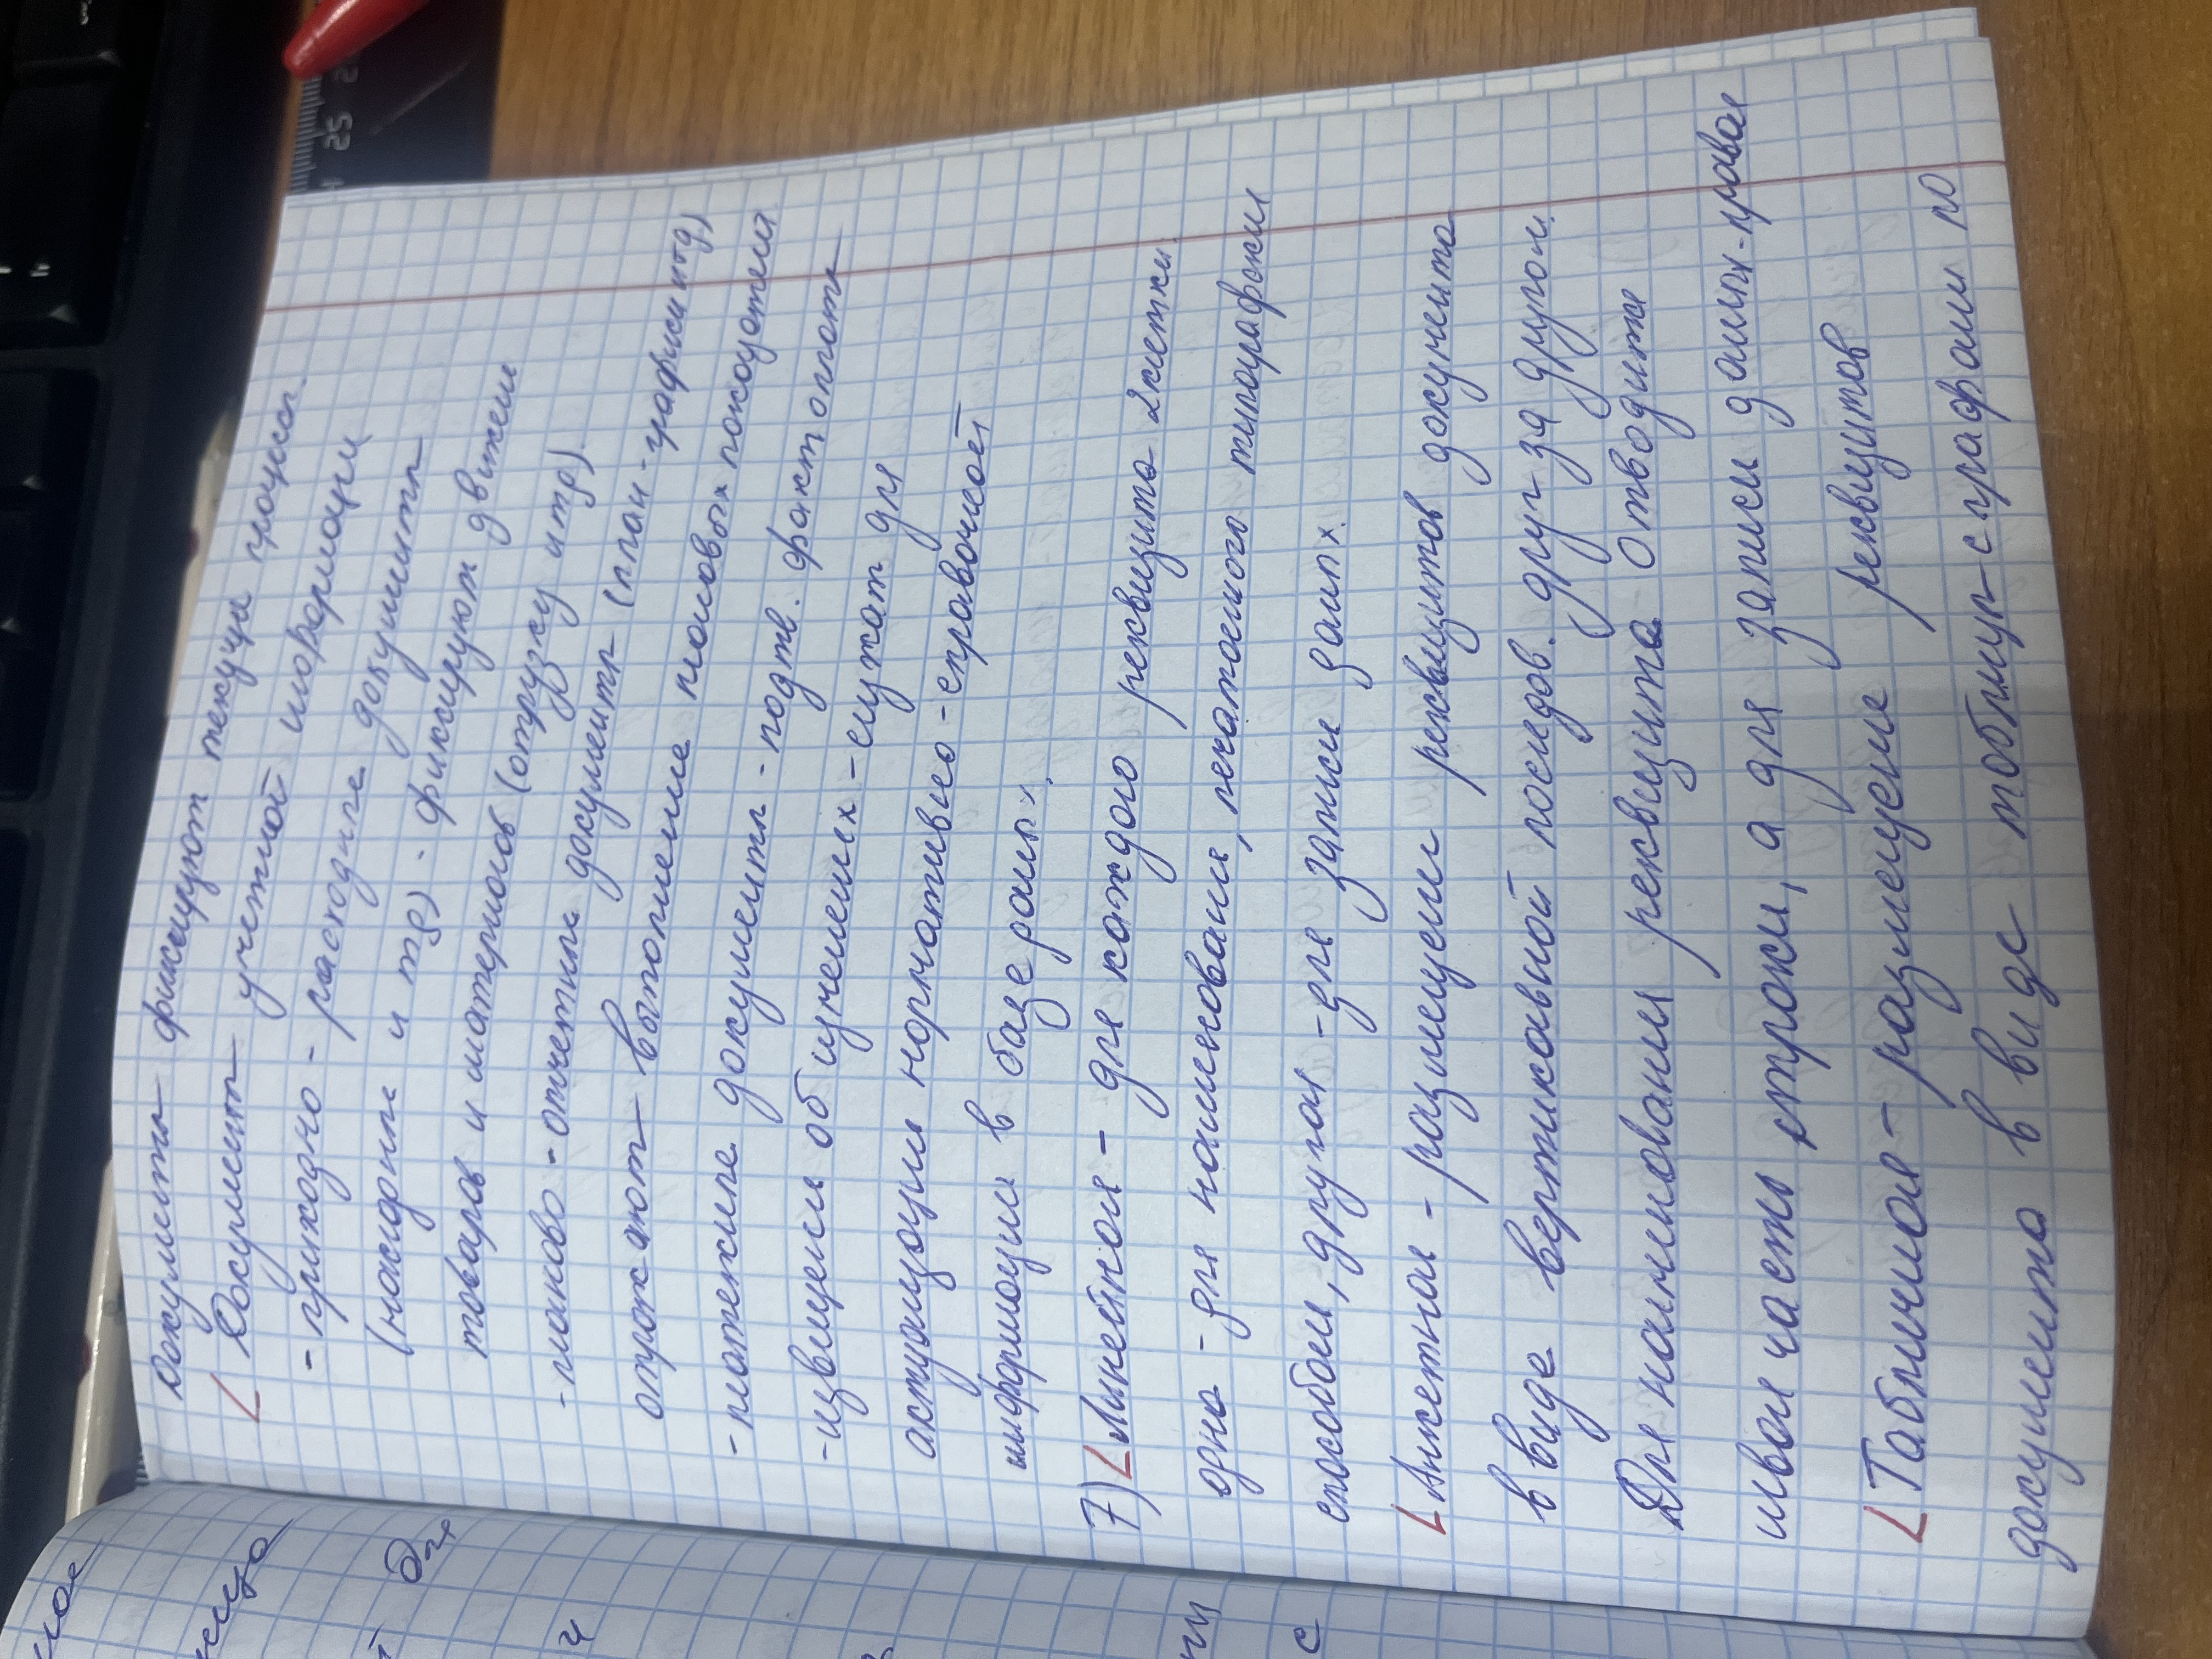 документы фиксируют текущие процессы
Документы учетной информации
- приходно - расходные документы
(накладные и тд) - фиксируют движение
товаров и материалов (отгрузку и тд).
- планово - отчетные документы (план - графики итд)
отражают выполнение плановых показателей
- платежные документы - подтв. факт оплаты
- извещения об изменениях - служат для
актуализации нормативно - справочной
информации в базе данных.
7) Линейная - для каждого реквизита 2 клетки
одна - для наименования, печатаемого типографским
способом, другая - для записи данных.
Анкетная - размещение реквизитов документа
в виде вертикальной последов. друг за другом.
Для наименования реквизита отводится
левая часть строки, а для записи данных - правая
Табличная - размещение реквизитов
документа в виде таблицы с графами по
ное
д-х
ч
с